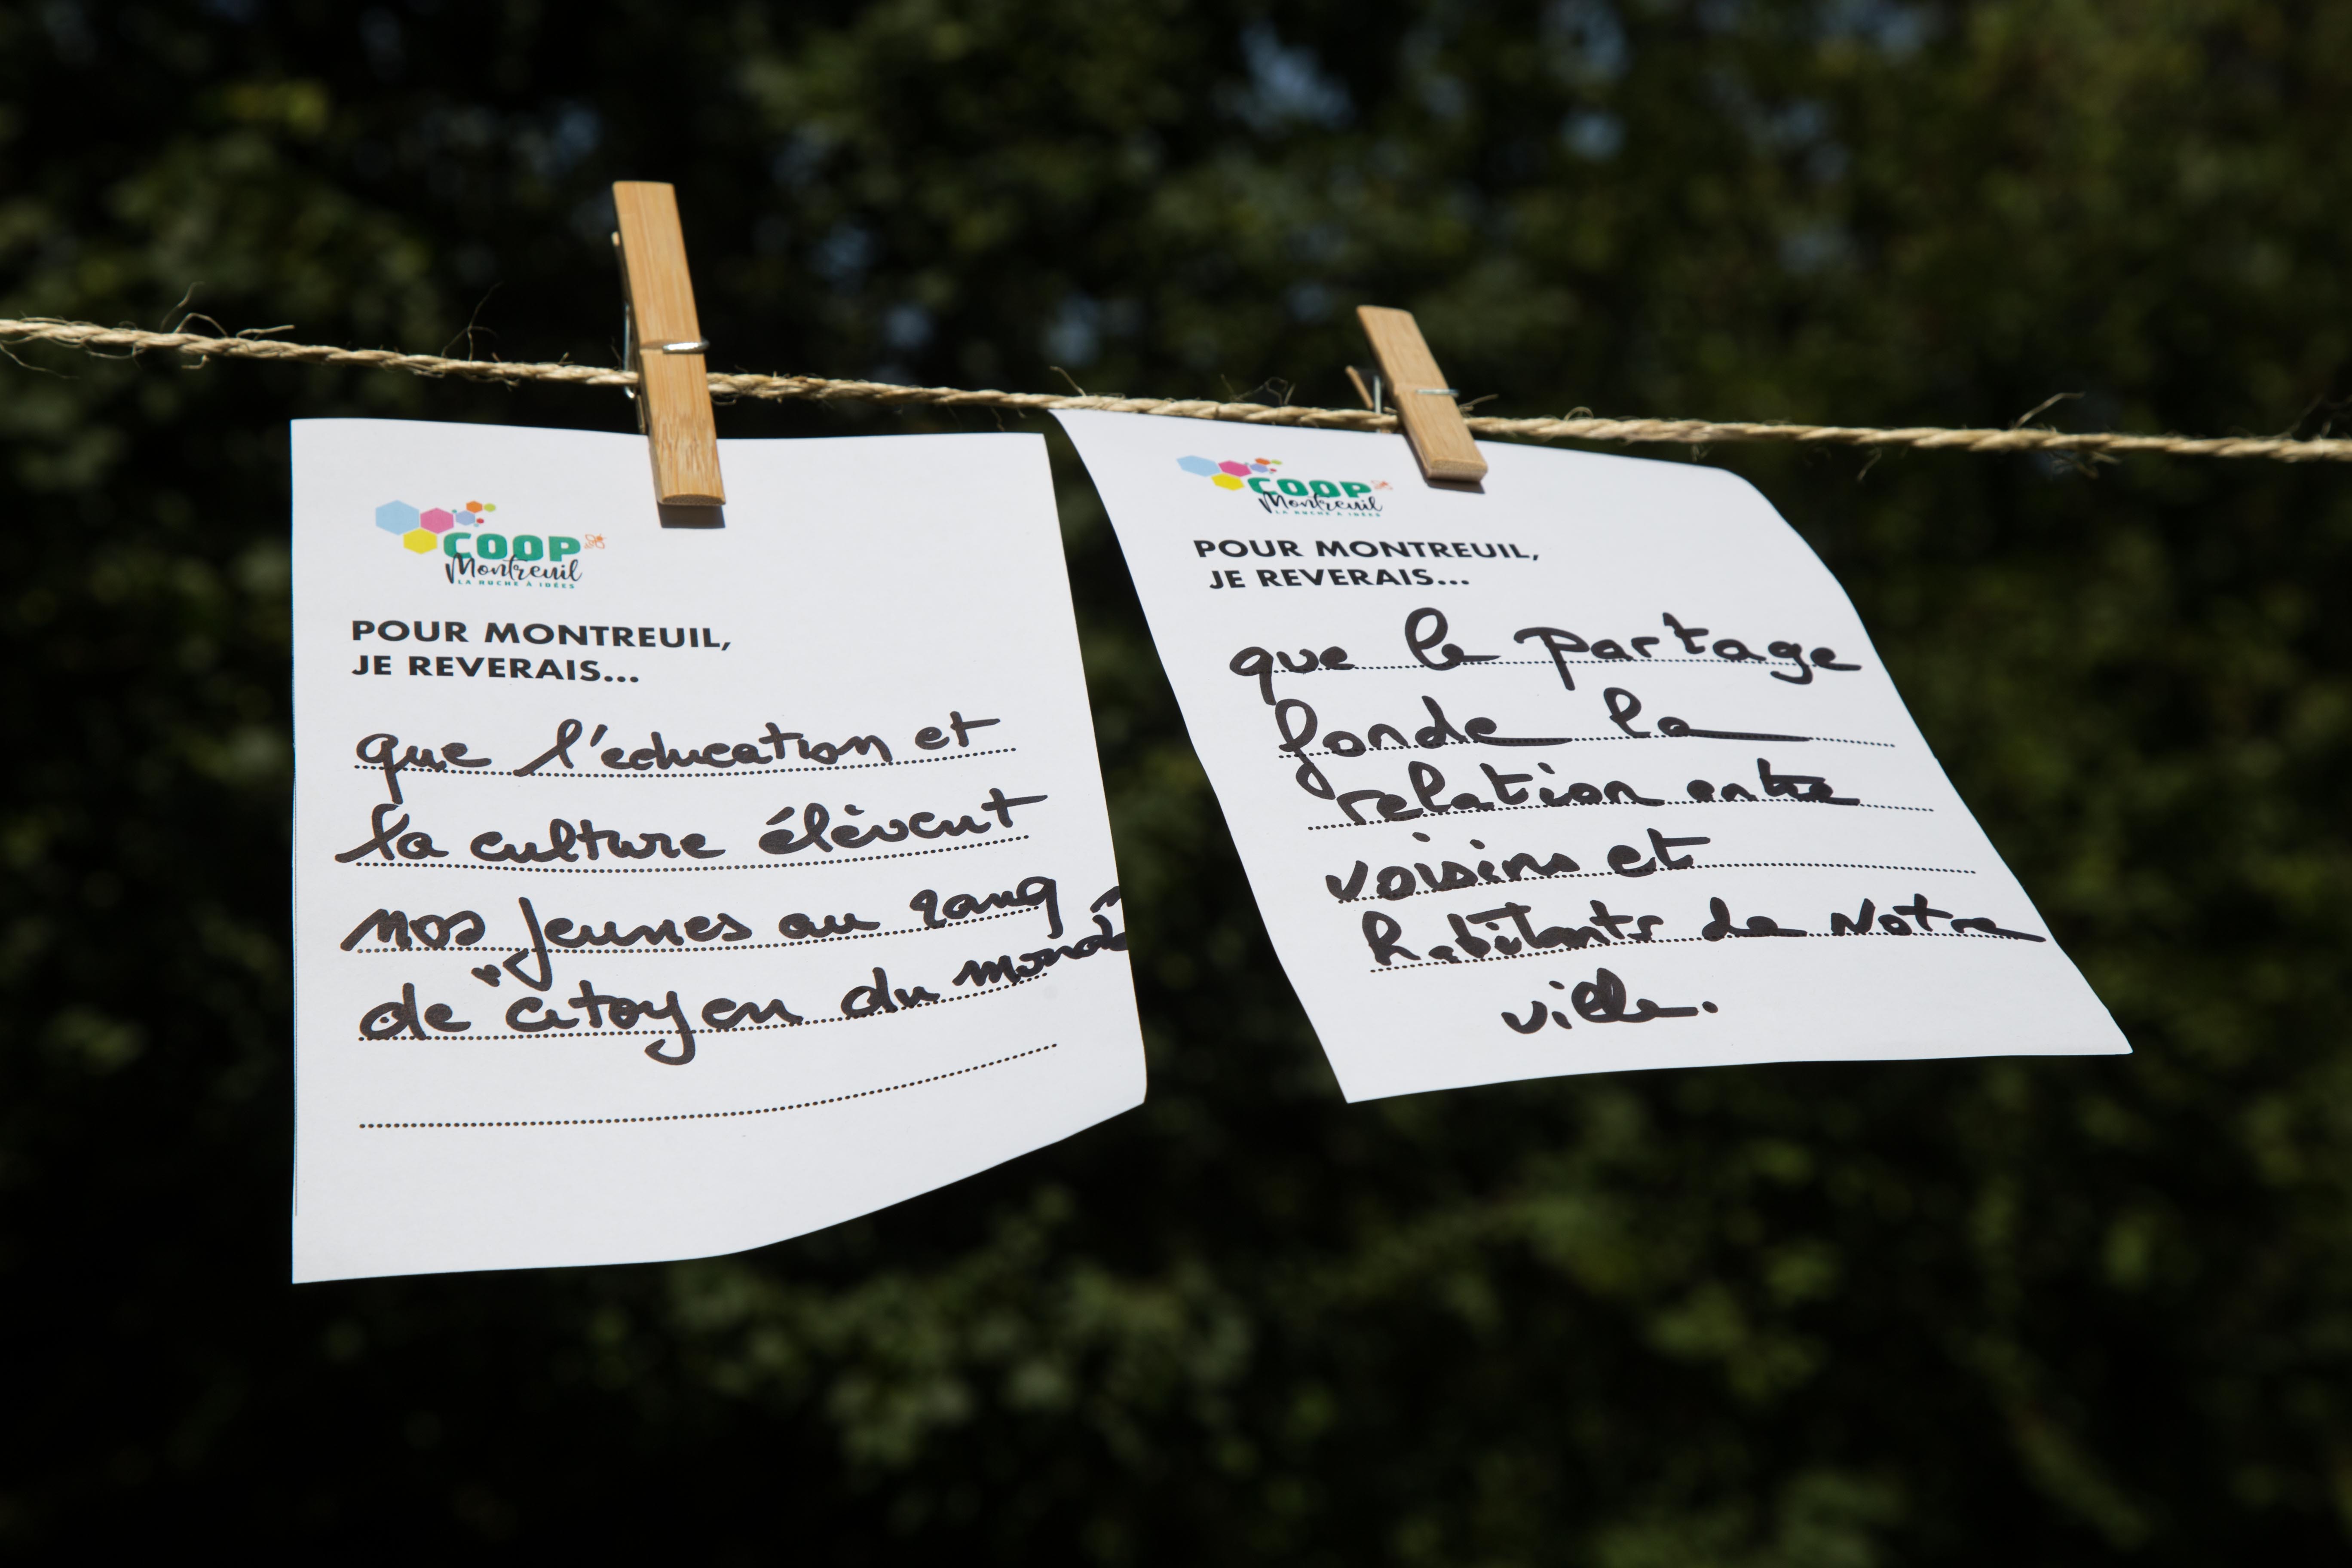 COOP
Montreuil
LA RUCHE À IDÉES
POUR MONTREUIL,
JE REVERAIS...
que l'education et
la culture élèvent
nos jeunes au rang
de "citoyen du monde"
COOP
Montreuil
LA RUCHE À IDÉES
POUR MONTREUIL,
JE REVERAIS...
que le partage
fonde la
relation entre
voisins et
habitants de Notre
ville.